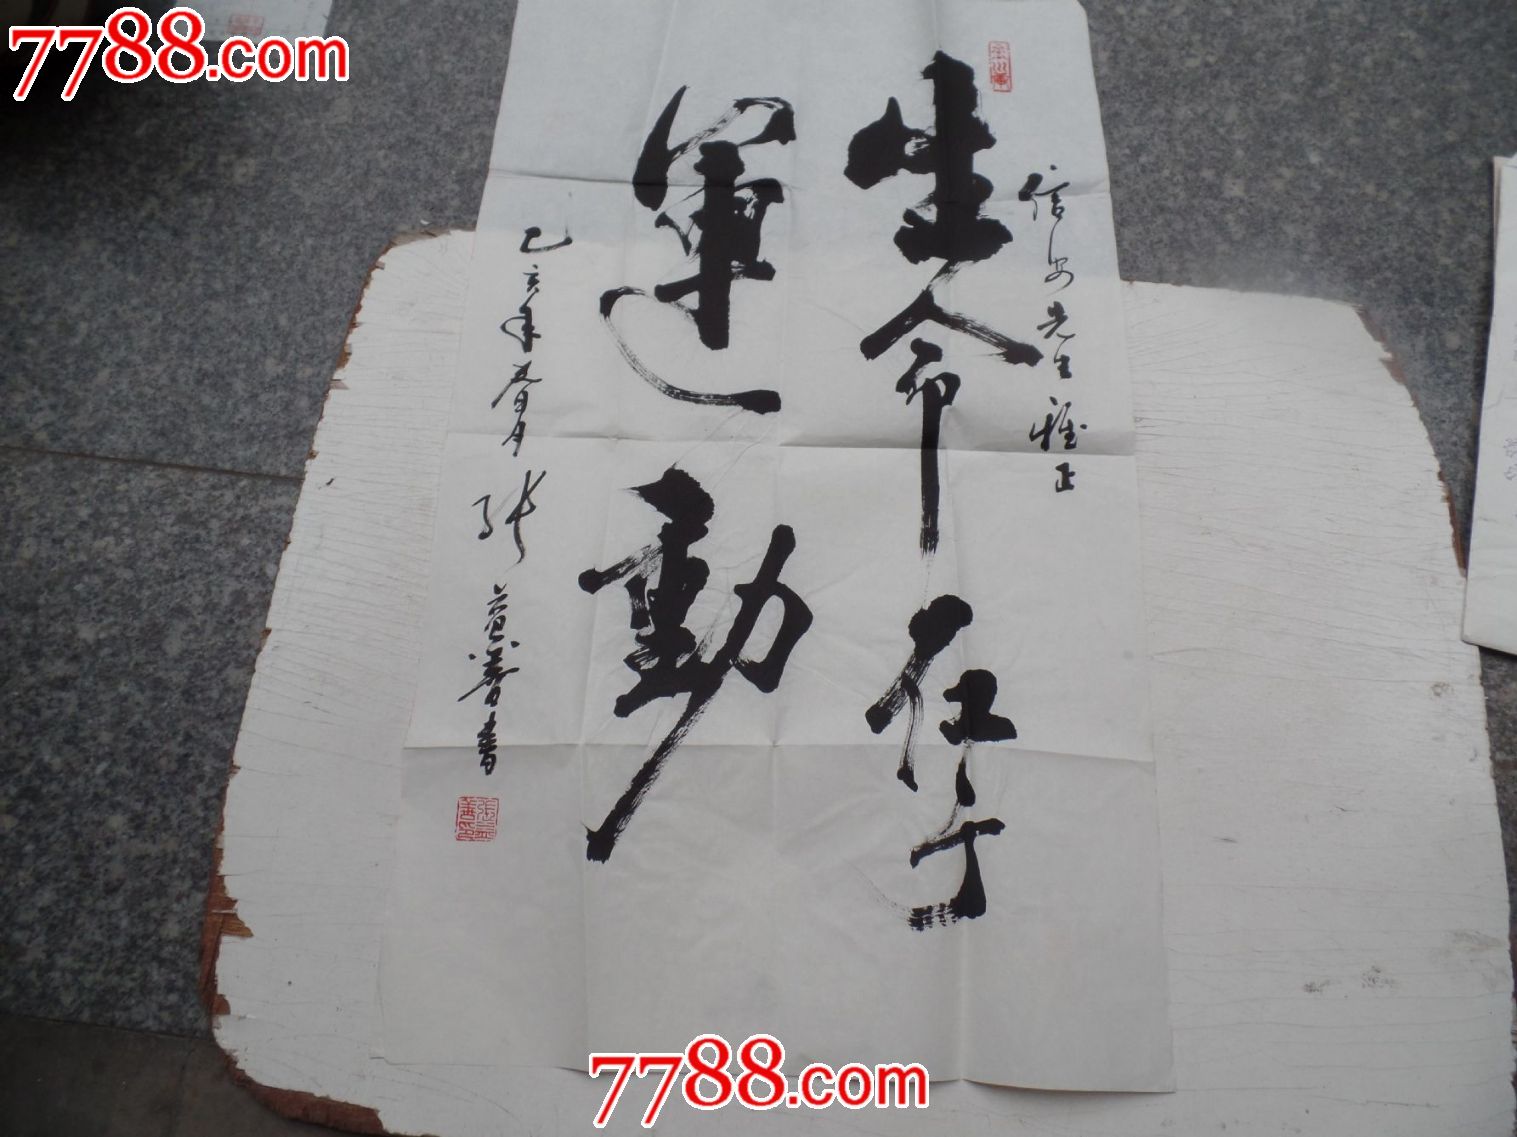 7788.com
信安先生雅正
生命在于
運動
乙亥年春月張益善書
張益善印
7788.com